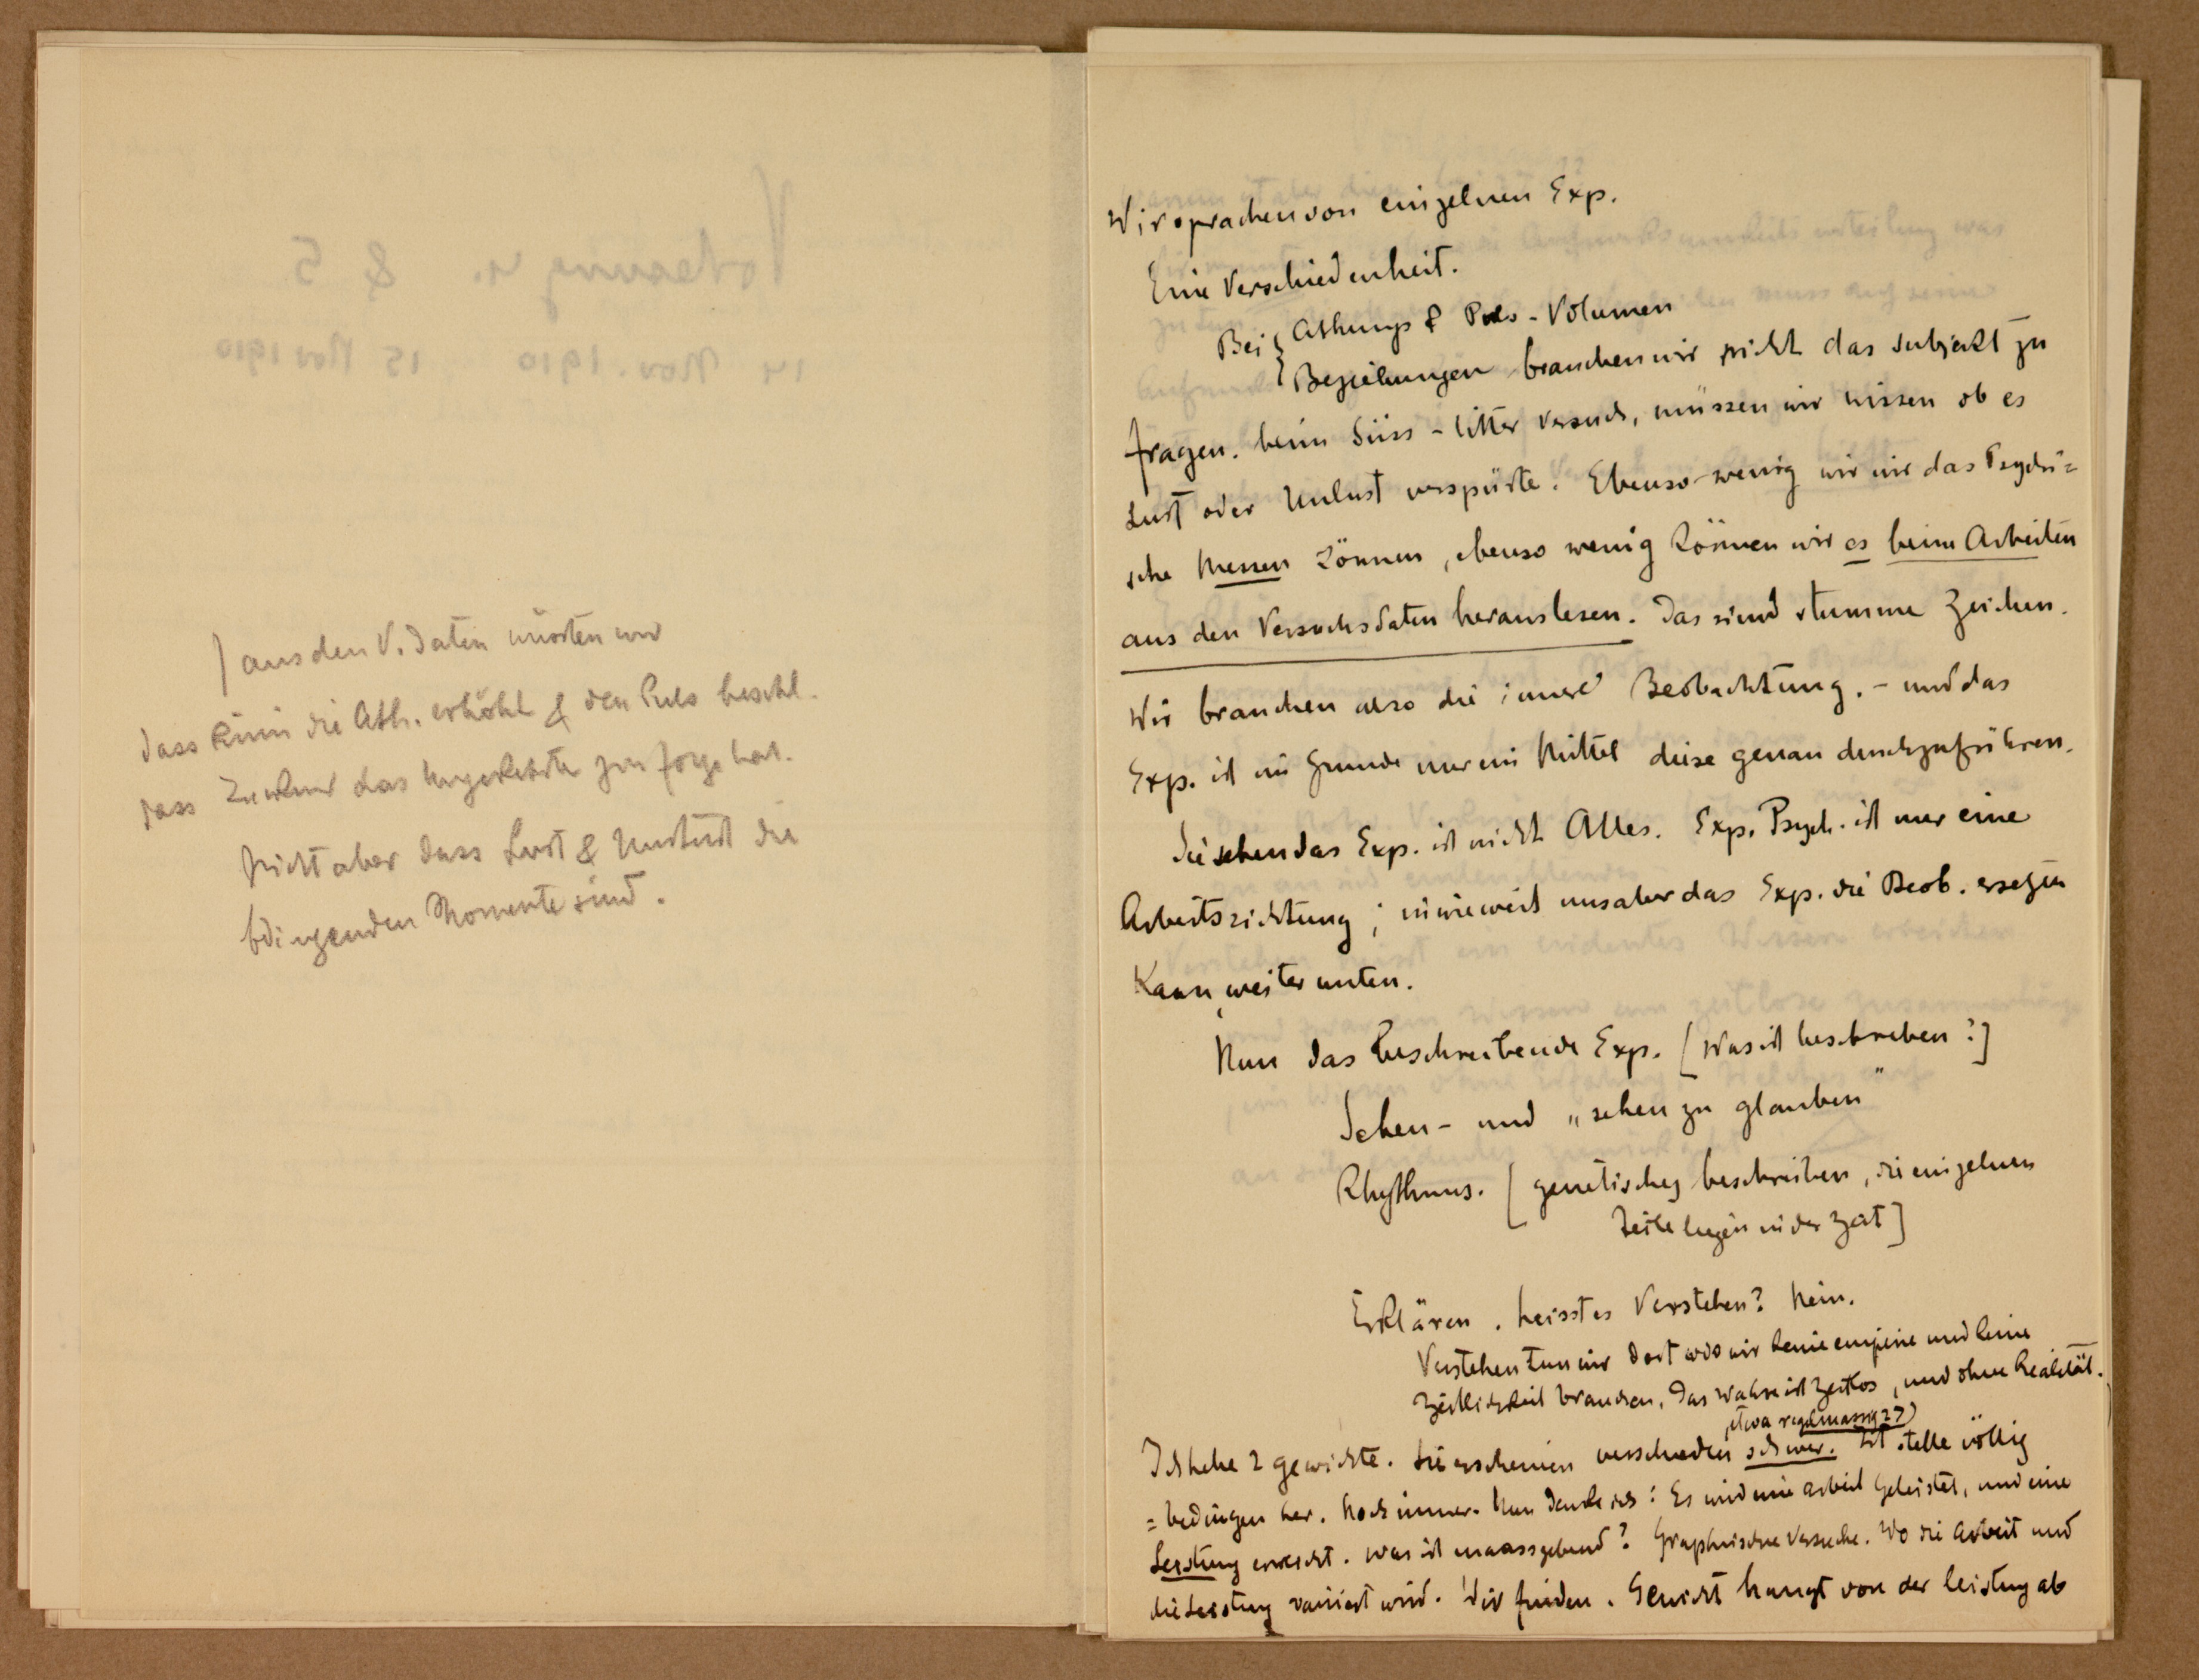 ] aus den V. Daten wüssten wir
dass Chinin die Ath. erhöht & den Puls beschl.
dass Zucker das Umgekehrte zur folge hat.
Nicht aber dass Lust & Unlust die
bdingenden Momente sind.
Wir sprachen von einzelnen Exp.
Eine Verschiedenheit.
Bei { Athungs & Puls - Volumen
Beziehungen brauchen wir nicht das Subjekt zu
fragen. beim Süss - bitter Versuch, müssen wir wissen ob es
Lust oder Unlust verspürte. Ebenso wenig wir das Psychi=
sche Messen können, ebenso wenig können wir es beim Arbeiten
aus den Versuchsdaten herauslesen. Das sind stumme Zeichen.
Wir brauchen also die innere Beobachtung. - und das
Exp. ist im Grunde nur ein Mittel diese genau durchzuführen.
Sie sehen das Exp. ist nicht Alles. Exp. Psych. ist nur eine
Arbeitsrichtung; inwieweit uns aber das Exp. die Beob. ersezen
Kann, weiter unten.
Nun das Beschreibende Exp. [Was ist beschreiben?]
Sehen - und „sehen zu glauben"
Rhythmus. [genetisches beschreiben, die einzelnen
Teile liegen in der Zeit]
Erklären. heisst es Verstehen? Nein.
Verstehen tun wir dort wo wir keine empirie und keine
Zeitlichkeit brauchen. Das Wahre ist Zeitlos, und ohne Realität.
etwa regelmässig??)
Ich hebe 2 gewichte. Sie erscheinen verschieden schwer. Ich stelle völlig
= bedingen her. Noch immer. Nun denke ich: Es wird eine arbeit geleistet, und eine
Leistung erreicht. Was ist maassgebend? Graphische Versuche. Wo die Arbeit und
die Leistung variiert wird. Wir finden. Gewicht hangt von der leistung ab